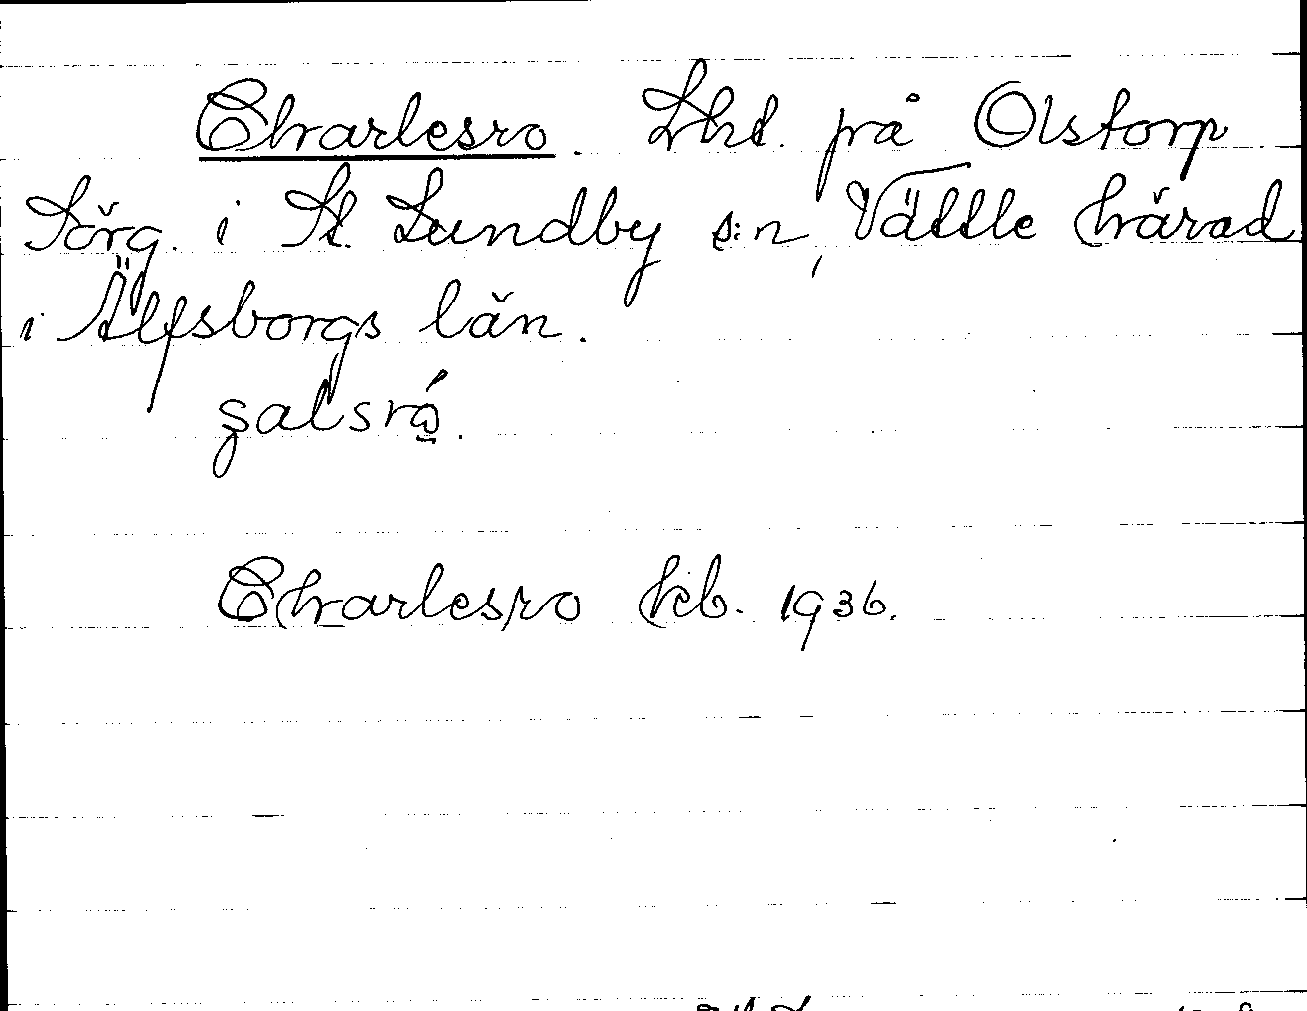 Charlesro. Lht. på Olstorp
Sörg. i St. Lundby s:n, Vättle härad
i Älfsborgs län.
şalsró̤.
Charlesro kb. 1936.